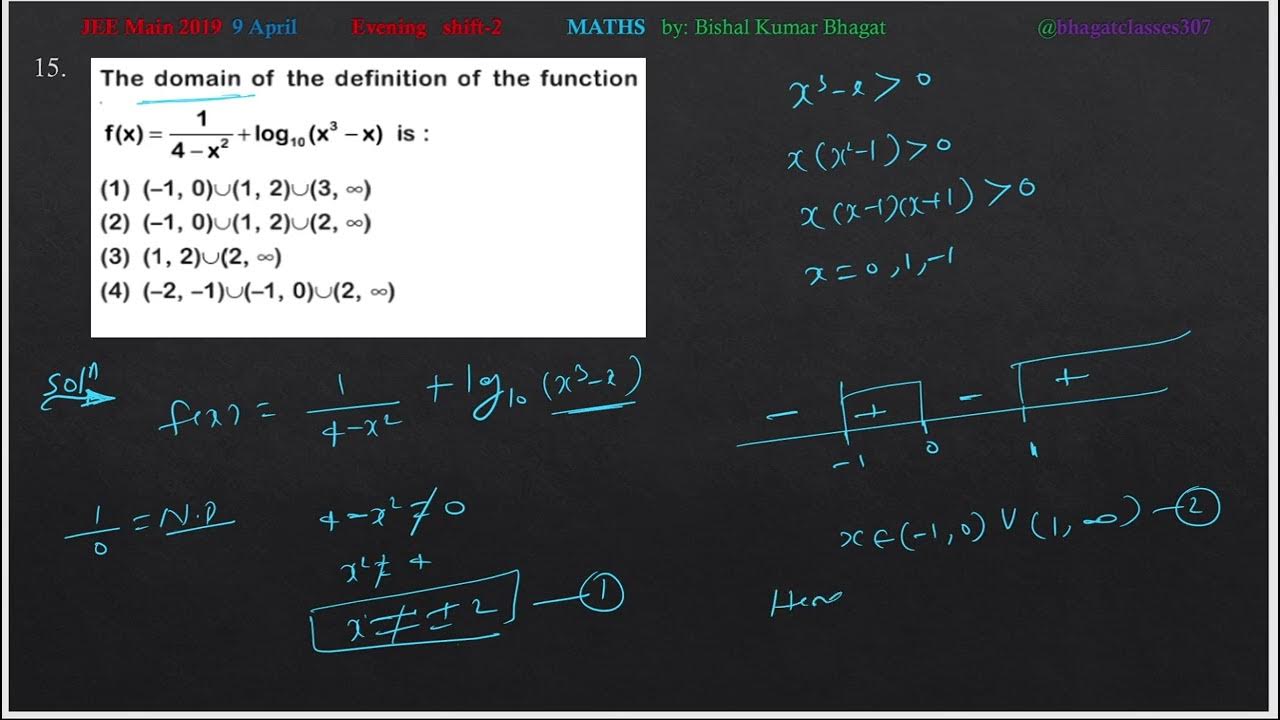 JEE Main 2019 9 April Evening shift-2 MATHS by: Bishal Kumar Bhagat @bhagatclasses307
15.
The domain of the definition of the function
f(x) = 1/(4 – x²) + log₁₀ (x³ – x) is :
(1) (–1, 0)∪(1, 2)∪(3, ∞)
(2) (–1, 0)∪(1, 2)∪(2, ∞)
(3) (1, 2)∪(2, ∞)
(4) (–2, –1)∪(–1, 0)∪(2, ∞)
Solⁿ
f(x) = 1/(4-x²) + log₁₀ (x³-x)
1/0 = N.D
4-x² ≠ 0
x² ≠ 4
x ≠ ± 2 — ①
x³-x > 0
x(x²-1) > 0
x(x-1)(x+1) > 0
x = 0, 1, -1
- + - +
-1 0 1
x ∈ (-1, 0) ∪ (1, ∞) — ②
Henc